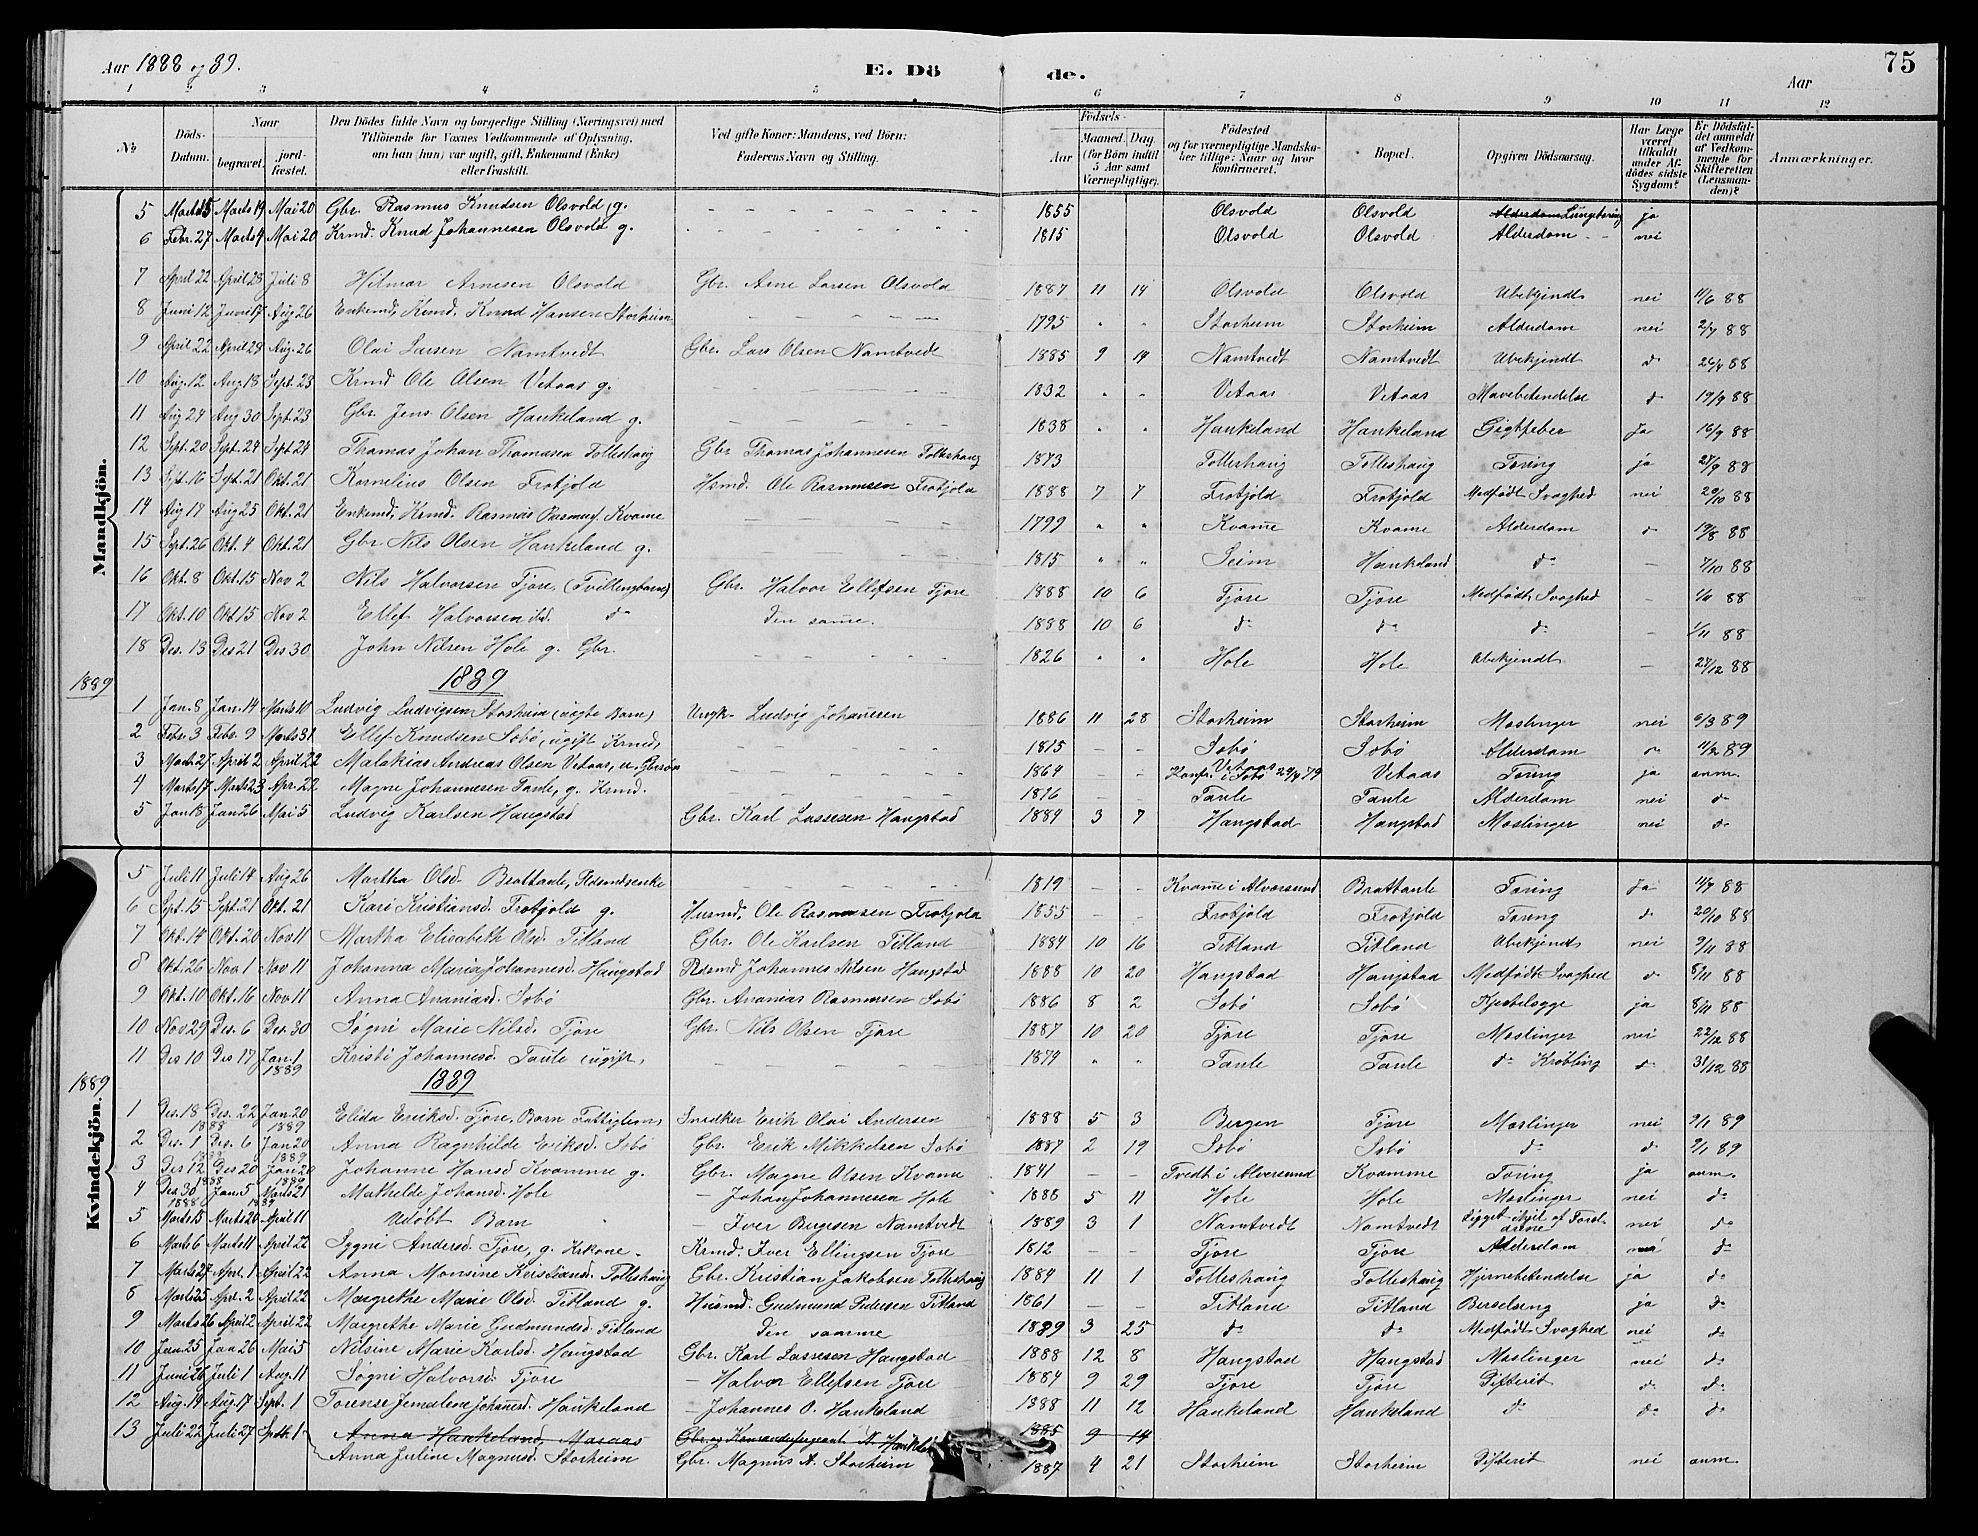 Aar 1888 og 89. E. Dö de. Aar 75
1 2 3 4 5 6 7 8 9 10 11 12
No Döds-Datum. Naar begravet. jordfæstet. Den Dödes fulde Navn og borgerlige Stilling (Næringsvei) med Tilföiende for Voxnes Vedkommende af Oplysning, om han (hun) var ugift, gift, Enkemand (Enke) eller fraskilt. Ved gifte Koner: Mandens, ved Börn: Faderens Navn og Stilling. Födsels- Aar Maaned. Dag. (for Börn indtil 5 Aar samt Værnepligtige). Födested og for værnepligtige Mandskaber tillige: Naar og hvor konfirmeret. Bopæl. Opgiven Dödsaarsag. Har Læge været tilkaldt under Afdödes sidste Sygdom? Er Dödsfaldet anmeldt af Vedkommende for Skifteretten (Lensmanden)? Anmærkninger.
Mandkjön.
5 Marts 15 Marts 19 Mai 20 Gbr. Rasmus Knudsen Olsvold, g. 1855 Olsvold Olsvold Alderdom Lungbetring ja
6 Febr. 27 Marts 4 Mai 20 Krmd. Knud Johannesen Olsvold g. 1815 Olsvold Olsvold Alderdom nei
7 April 22 April 28 Juli 8 Hilmar Arnesen Olsvold Gbr. Arne Larsen Olsvold 1887 11 14 Olsvold Olsvold Ubekjendt nei 11/6 88
8 Juni 12 Juni 17 Aug 26 Enkemd, Krmd. Knud Hansen Storheim 1795 " " Storheim Storheim Alderdom nei 2/7 88
9 April 22 April 29 Aug. 26 Olai Larsen Namtvedt Gbr. Lars Olsen Namtvedt 1885 9 14 Namtvedt Namtvedt Ubekjendt do 26/4 88
10 Aug. 12 Aug 18 Sept. 23 Krmd Ole Olsen Vetaas g. 1832 " " Vetaas Vetaas Mavebetendelse do 19/9 88
11 Aug 24 Aug 30 Sept. 23 Gbr. Jens Olsen Haukeland g. 1838 " " Haukeland Haukeland Gigtfeber Ja 16/9 88
12 Sept. 20 Sept. 24 Sept 24 Thomas Johan Thomasen Tolleshaug Gbr Thomas Johannesen Tolleshaug 1873 Tolleshaug Tolleshaug Tæring ja 27/9 88
13 Sept. 16 Sept. 21 Okt. 21 Kornelius Olsen Frotjold Hsmd. Ole Rasmussen Frotjold 1888 7 7 Frotjold Frotjold Medfødt Svaghed nei 20/10 88
14 Aug 17 Aug 25 Okt. 21 Enkemd, Krmd. Rasmus Rasmus. Kvame 1799 " " Kvame Kvame Alderdom do 19/8 88
15 Sept. 26 Okt. 4 Okt. 21 Gbr Nils Olsen Haukeland g. 1815 " " Seim Haukeland do — 7/10 88
16 Okt. 8 Okt. 15 Nov 2 Nils Halvorsen Tjore (Tvillingbarn) Gbr. Halvor Ellefsen Tjore 1888 10 6 Tjore Tjore Medfødt Svaghed — 1/11 88
17 Okt. 10 Okt. 15 Nov 2 Ellef Halvorsen ibid. do Den samme. 1888 10 6 do do do — 1/11 88
18 Des. 13 Des 21 Des 30 John Nilsen Hole g. Gbr. 1826 " " Hole Hole Ubekjendt — 27/12 88
1889 1889
1 Jan. 8 Jan. 14 Marts 10 Ludvig Ludvigsen Storheim (uægte Barn) Ungk. Ludvig Johannesen 1886 11 28 Storheim Storheim Meslinger nei 6/3 89
2 Febr. 3 Febr. 9 Marts 31 Ellef Knudsen Sobø, ugift Krmd, 1815 — — Sobø Sobø Alderdom do 4/2 89
3 Marts 27 April 2 April 22 Malakias Andreas Olsen Vetaas, u. Gbrsøn 1864 — — Vetaas Konfr. i Sobø 24/9 79 Vetaas Tæring ja anm.
4 Marts 17 Marts 23 Apr. 22 Magne Johannesen Taule, g. Krmd. 1816 — — Taule Taule Alderdom nei do
5 Jan 18 Jan 26 Mai 5 Ludvig Karlsen Haugstad Gbr. Karl Lassesen Haugstad 1884 3 7 Haugstad Haugstad Meslinger nei do
Kvindekjön.
5 Juli 11 Juli 14 Aug 26 Martha Olsd. Brattaule, Pdsmdsenke 1819 — — Kvame i Alversund Brattaule Tæring Ja 11/7 88
6 Sept. 15 Sept. 21 Okt. 21 Kari Kristiansd. Frotjold g. Husmd, Ole Rasmussen Frotjold 1855 — — Frotjold Frotjold Tæring do 20/10 88
7 Okt. 14 Okt. 20 Nov 11 Martha Elisabeth Olsd. Titland Gbr. Ole Karlsen Titland 1884 10 16 Titland Titland Ubekjendt nei 9/11 88
8 Okt. 26 Nov. 1 Nov 11 Johanna Maria Johannesd. Haugstad Pdsmd Johannes Nilsen Haugstad 1888 10 20 Haugstad Haugstad Medfødt Svaghed do 8/11 88
9 Okt. 10 Okt. 16 Nov. 11 Anna Ananiasd. Sobø Gbr. Ananias Rasmussen Sobø 1886 8 2 Sobø Sobø Kjertelsyge ja 8/11 88
10 Nov 29 Des. 6 Des. 30 Søgni Marie Nilsd. Tjore Gbr. Nils Olsen Tjore 1887 10 20 Tjore Tjore Meslinger nei 22/12 88
11 Des 10 Des 17 Jan. 1 1889 Kristi Johannesd. Taule (ugift) 1874 " " Taule Taule do Krobling do 31/12 88
1889 1889
1 Des. 18 Des. 22 Jan. 20 Elida Eriksd. Tjore, Barn Fattiglem Snedker Erik Olai Andersen 1888 5 3 Bergen Tjore Meslinger nei 9/1 89
1888 1889
2 Des. 1 Des. 6 Jan 20 Anna Ragnhilde Eriksd. Sobø Gbr. Erik Mikkelsen Sobø 1887 2 19 Sobø Sobø do do 9/1 89
1888 1889
3 Des 12 Des 20 Jan 20 Johanne Hansd. Kvamme g. Gbr. Magne Olsen Kvame 1841 — Tvedt i Alversund Kvamme Tæring ja anm.
1888 1889
4 Des. 30 Jan. 5 Marts 21 Mathilde Johansd. Hole — Johan Johannesen Hole 1888 5 11 Hole Hole Meslinger nei do
1888 1889
5 Marts 15 Marts 20 April 11 Udøbt Barn — Iver Brigesen Namtvedt 1889 3 1 Namtvedt Namtvedt Ligget ihjel af Forældrene nei do
6 Marts 6 Marts 11 April 22 Sygni Andersd. Tjore, g. Krkone. Krmd. Iver Ellingsen Tjore 1812 — — Tjore Tjore Alderdom nei do
7 Marts 27 Apr. 1 April 22 Anna Monsine Kristiansd. Tolleshaug Gbr. Kristian Jakobsen Tolleshaug 1884 11 1 Tolleshaug Tolleshaug Hjernebetendelse ja do
8 Marts 25 Apr. 2 April 22 Margrethe Marie Olsd. Titland g. Husmd. Gudmund Pedersen Titland 1861 — — Titland Titland Berselseng ja do
9 Marts 26 April 2 April 22 Margrethe Marie Gudmundsd. Titland Den samme 1889 3 25 do do Medfødt Svaghed nei do
10 Jan 25 Jan 26 Mai 5 Nilsine Marie Karlsd. Haugstad Gbr. Karl Lassesen Haugstad 1888 12 8 Haugstad Haugstad Meslinger nei do
11 Juni 26 Juli 1 Aug. 11 Søgni Halvorsd. Tjore — Halvor Ellefsen Tjore 1884 9 29 Tjore Tjore Difterit do do
12 Aug. 14 Aug. 17 Sept. 1 Torense Jemaline Johannesd. Haukeland — Johannes O. Haukeland 1888 11 12 Haukeland Haukeland do do do
13 Juli 22 Juli 27 Septk. 1 Anna Haukeland, Maraas Gbr. og Kommandersergeant N. Haukeland 1885 9 14
Anna Juline Magnusd. Storheim Gbr. Magnus A. Storheim 1887 4 21 Storheim Storheim Difterit nei anm.